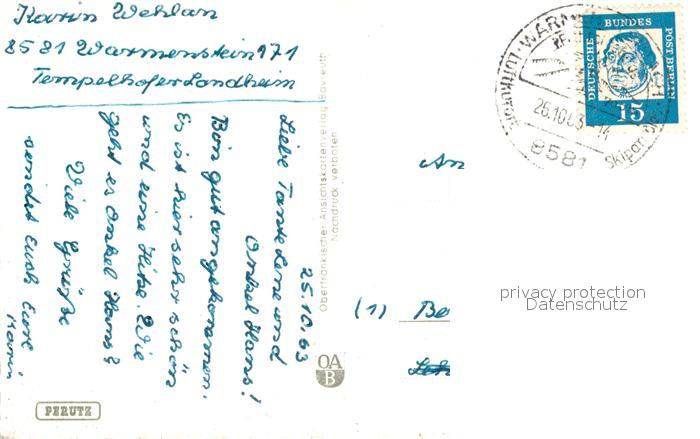 Karin Wehlan
8581 Warmenstein 171
Tempelhofer Landheim
25.10.63
Liebe Tante Lene und
Onkel Hans!
Bin gut angekommen.
Es ist hier sehr schön
und eine Hitze. Wie
geht es Onkel Hans?
Viele Grüße
sendet Euch Eure
Karin.
Oberfränkischer Ansichtskartenverlag Bayreuth
Nachdruck verboten
OA
B
PERUTZ
An
(1) Be
privacy protection
Datenschutz
DEUTSCHE BUNDES POST BERLIN
15
26.10.63-14
8581